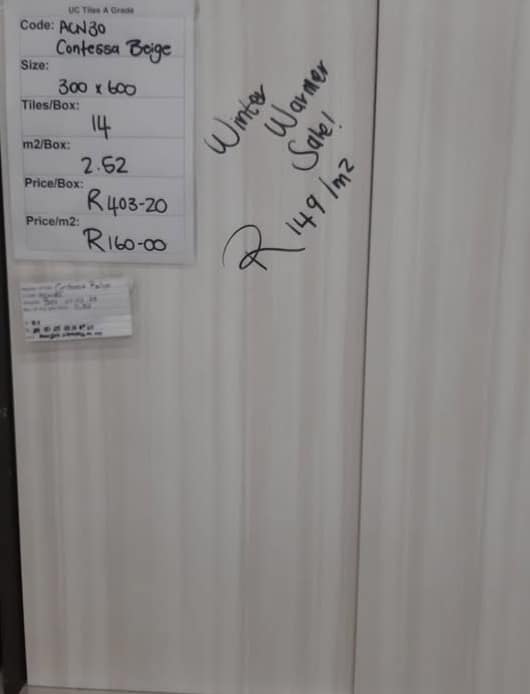 UC Tiles A Grade
Code: ACN30
Contessa Beige
Size:
300 x 600
Tiles/Box:
14
m2/Box:
2.52
Price/Box:
R403-20
Price/m2:
R160-00
Winter
Warmer
Sale!
R149/m2
Contessa Beige